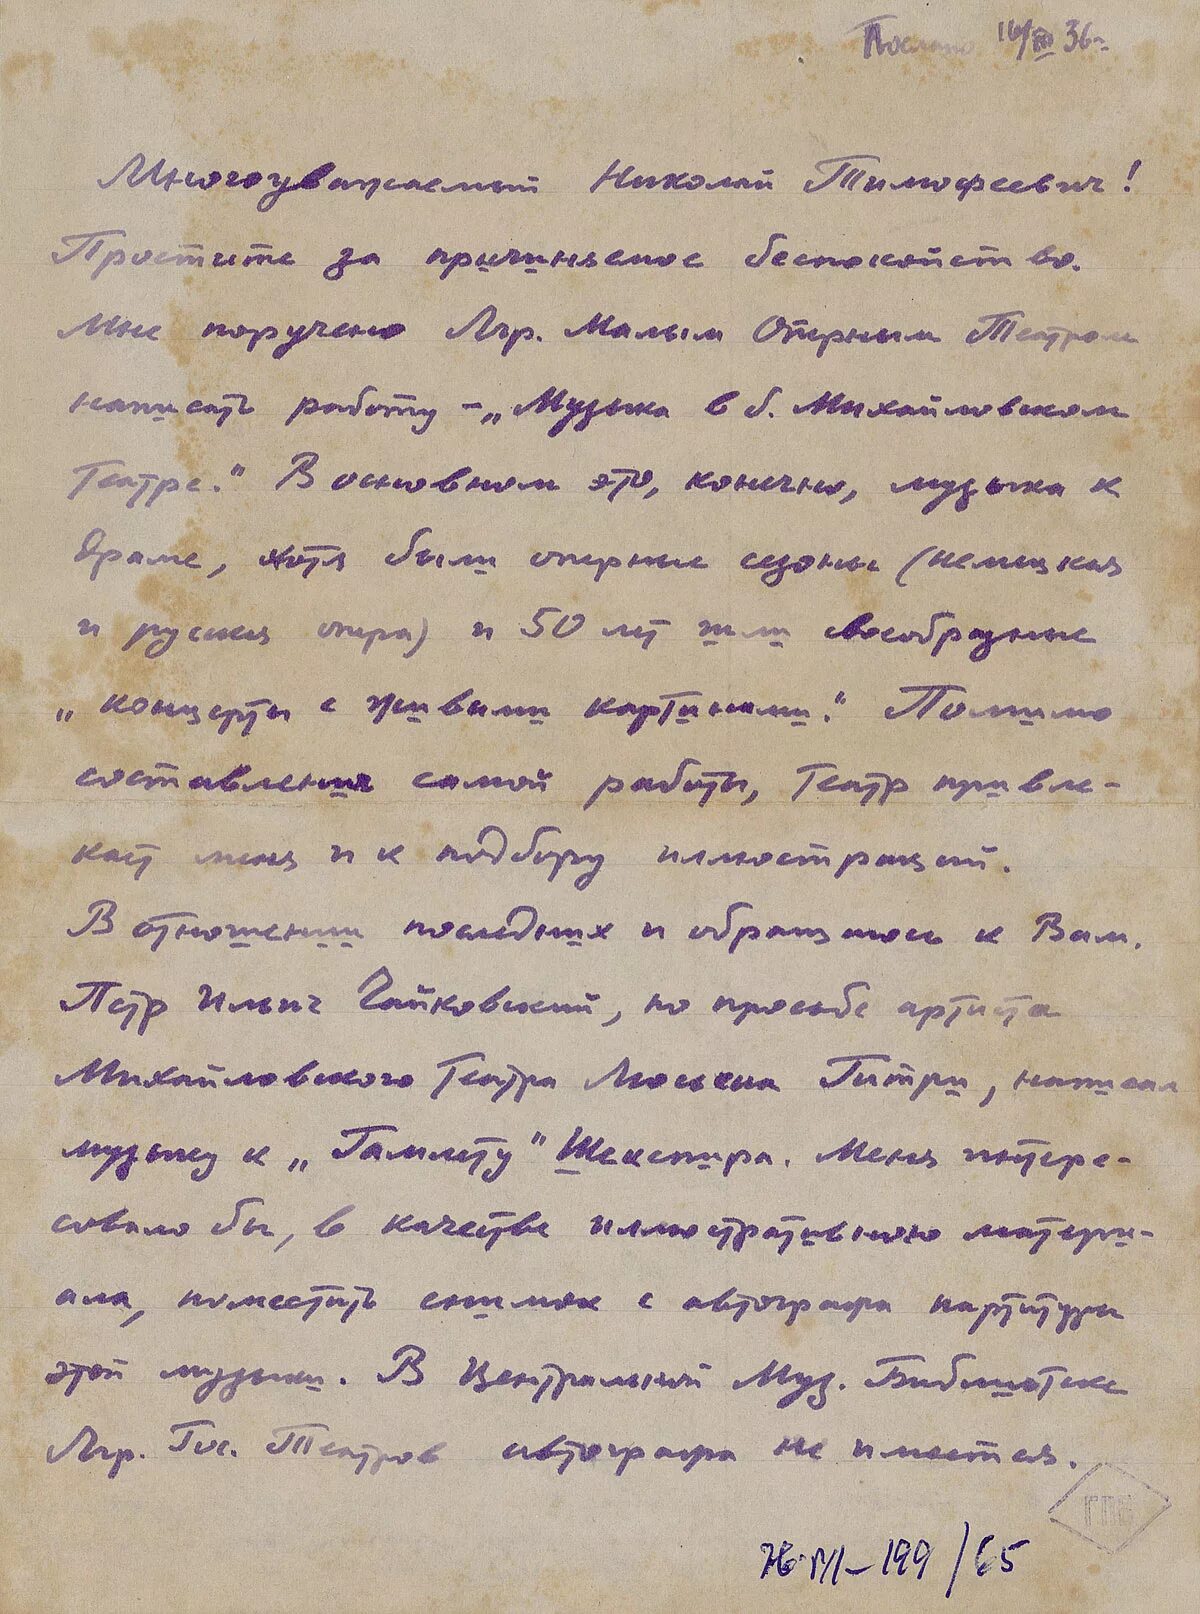 Послано 16/III 36 г.
Многоуважаемый Николай Тимофеевич!
Простите за причиняемое беспокойство.
Мне поручено Лгр. Малым Оперным Театром
написать работу – „Музыка в б. Михайловском
Театре." В основном это, конечно, музыка к
драме, хотя были оперные сезоны (немецкая
и русская опера) и 50 лет шли своеобразные
„концерты с живыми картинами." Помимо
составления самой работы, Театр привле-
кает меня и к подбору иллюстраций.
В отношении последних и обращаюсь к Вам.
Петр Ильич Чайковский, по просьбе артиста
Михайловского Театра Люсьена Гитри, написал
музыку к „Гамлету" Шекспира. Меня интере-
совало бы, в качестве иллюстративного матери-
ала, поместить снимок с автографа партитуры
этой музыки. В Центральной Муз. Библиотеке
Лгр. Гос. Театров автографа не имеется.
ГПБ
199/65